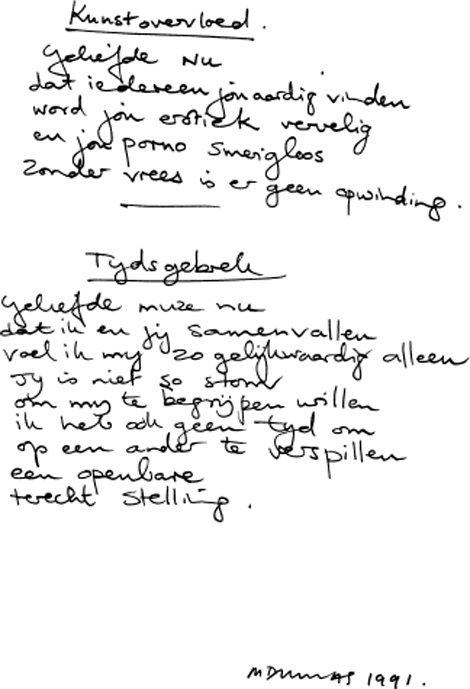 Kunstovervloed.
Geliefde nu
dat iedereen jou aardig vinden
word jou erotiek vervelig
en jou porno smerigloos
Zonder vrees is er geen opwinding.
Tydsgebrek
Geliefde muze nu
dat ik en jij samenvallen
voel ik my zo gelijkwaardig alleen
Jy is niet so stom
om my te begrijpen willen
ik heb ook geen tyd om
op een ander te verspillen
een openbare
terecht stelling.
MDumas 1991.